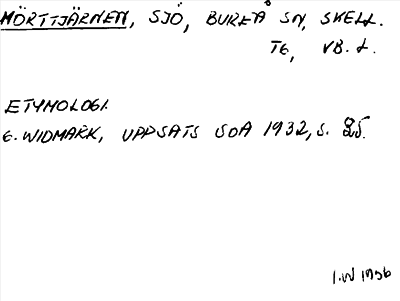 MÖRTTJÄRNEN, SJÖ, BUREÅ SN, SKELL.
TG, VB. L.
ETYMOLOGI.
G. WIDMARK, UPPSATS SOA 1932, S. 25.
I.W 1936